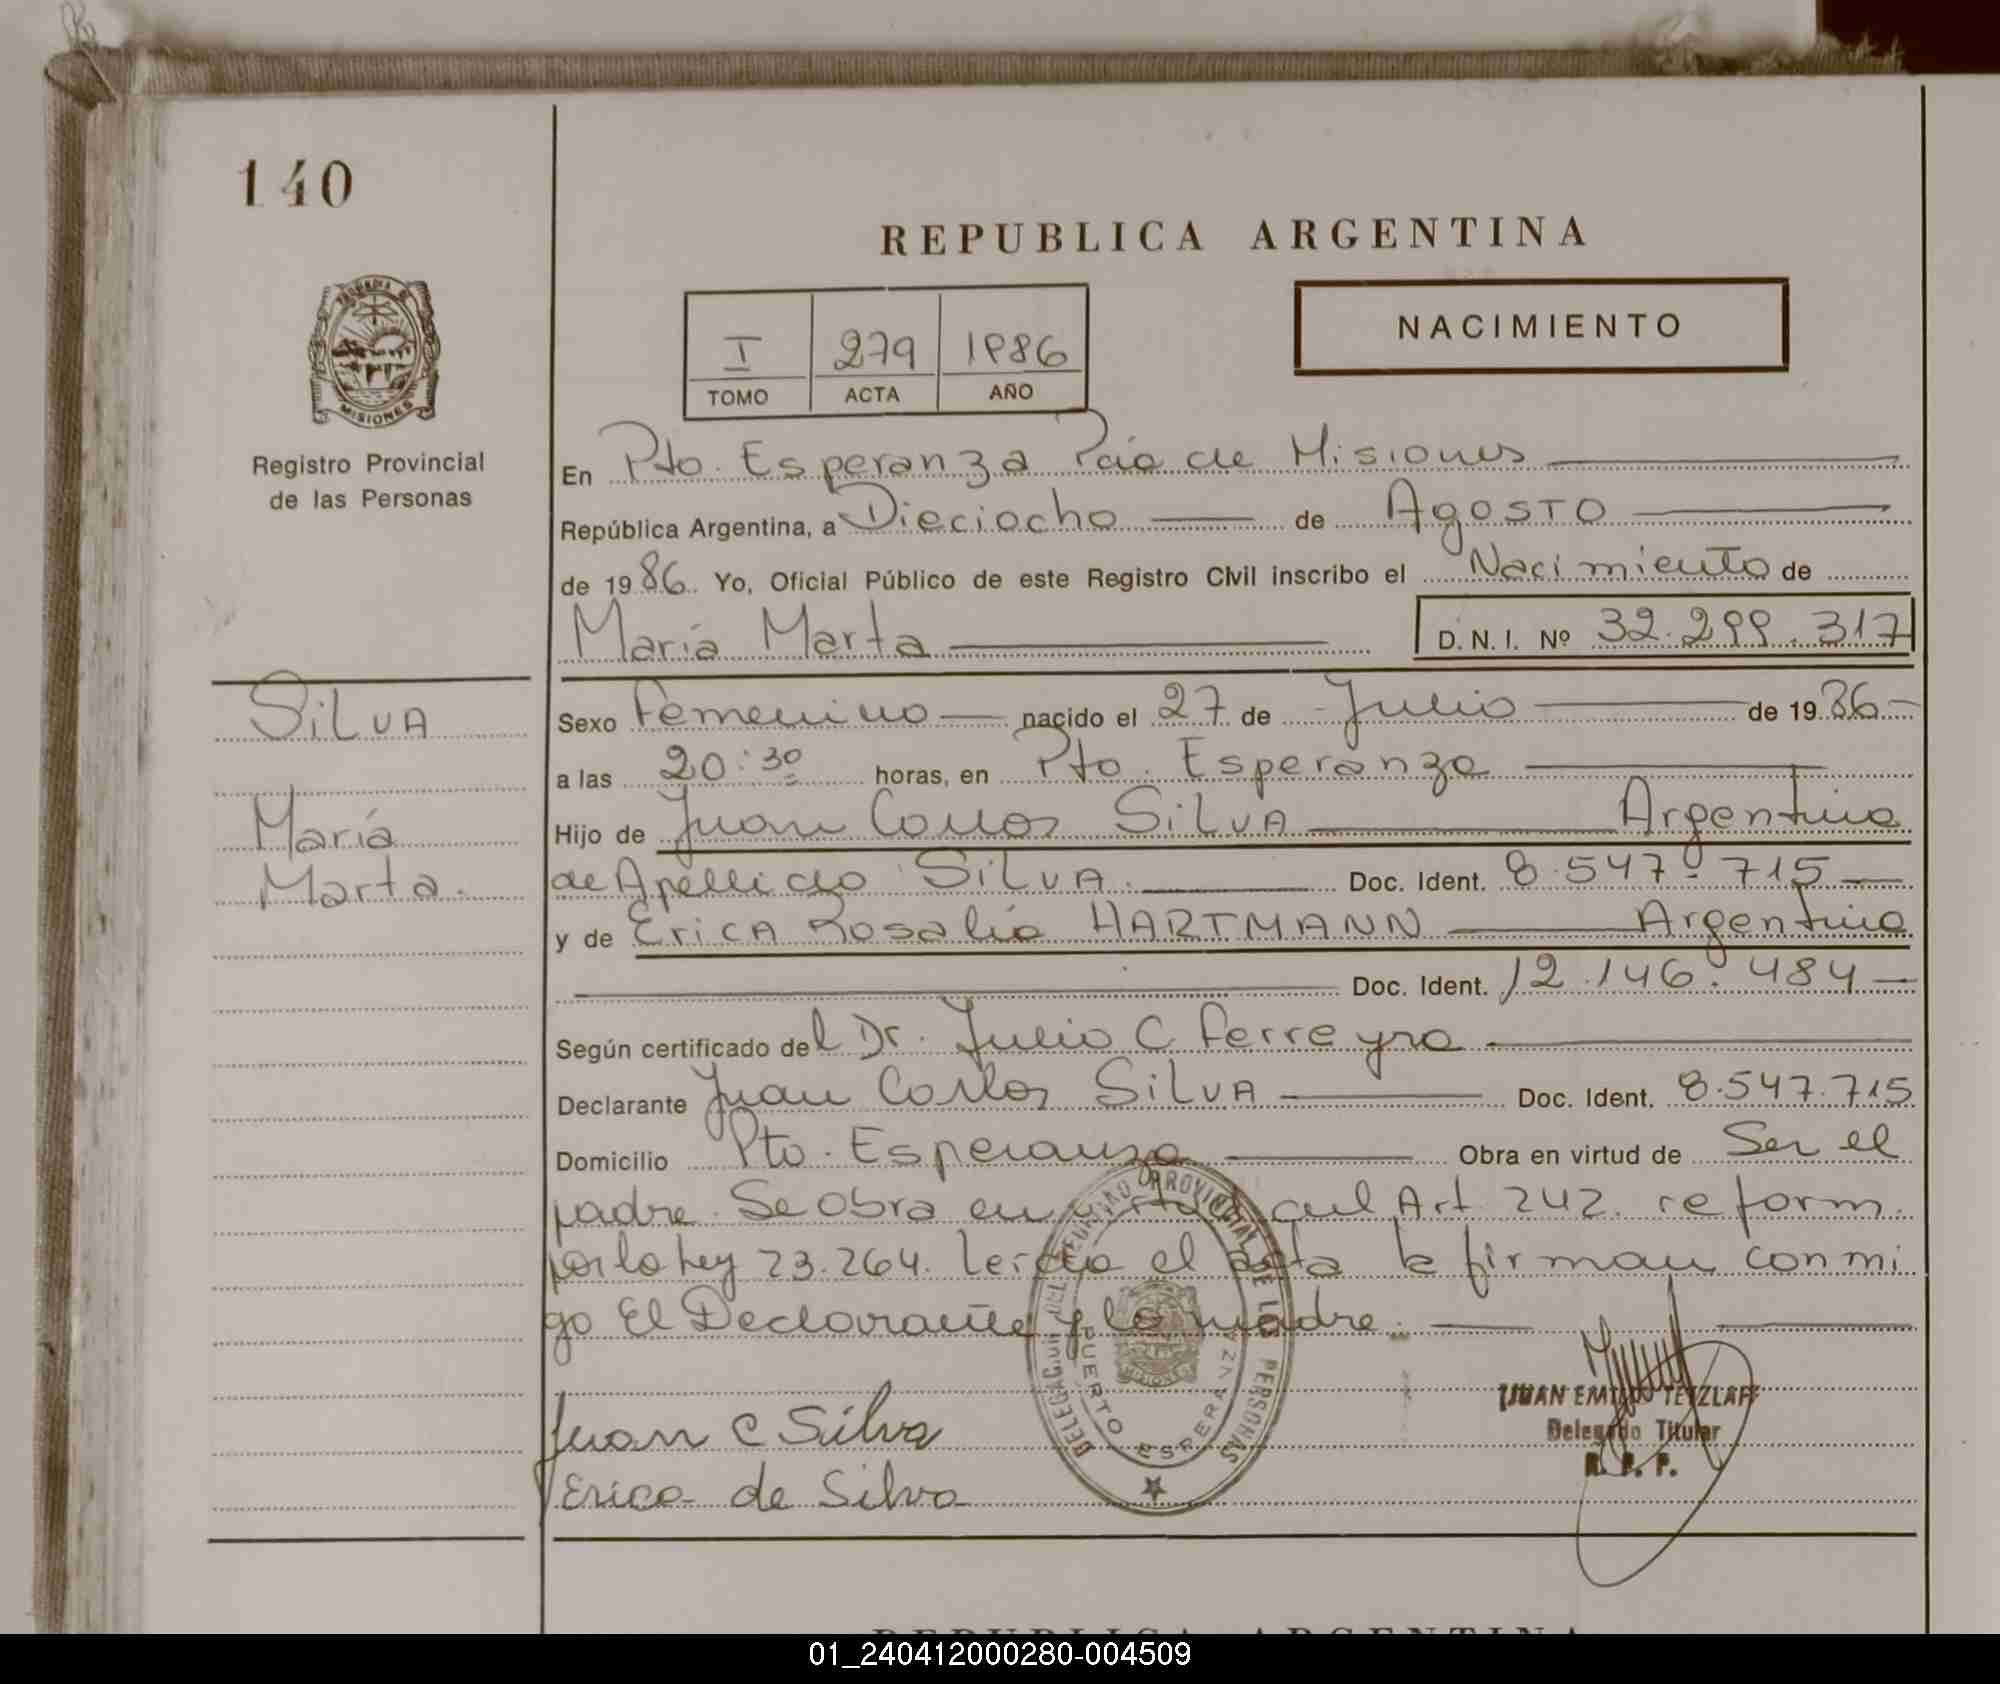 140
REPUBLICA ARGENTINA
NACIMIENTO
I 279 1986
TOMO ACTA AÑO
MISIONES
Registro Provincial
de las Personas
En Pto. Esperanza Pcia de Misiones
República Argentina, a Dieciocho de Agosto
de 1986. Yo, Oficial Público de este Registro Civil inscribo el Nacimiento de
María Marta D. N. I. Nº 32.299.317
SILVA
María
Marta.
Sexo Femenino nacido el 27 de Julio de 1986
a las 20:30 horas, en Pto. Esperanza
Hijo de Juan Carlos SILVA Argentino
de Apellido SILVA. Doc. Ident. 8.547.715
y de Erica Rosalia HARTMANN Argentina
Doc. Ident. 12.146.484
Según certificado del Dr. Julio C Ferreyra
Declarante Juan Carlos SILVA Doc. Ident. 8.547.715
Domicilio Pto. Esperanza Obra en virtud de Ser el
padre. Se obra en virtud del Art 242. reform.
por la Ley 23.264. Leida el acta la firman conmi
go El Declarante y la madre.
Juan C Silva
Erica de Silva
DELEGACION DEL REGISTRO PROVINCIAL DE LAS PERSONAS
PUERTO ESPERANZA
MISIONES
JUAN EMILIO TETZLAFF
Delegado Titular
R. P. P.
REPUBLICA ARGENTINA
01_240412000280-004509